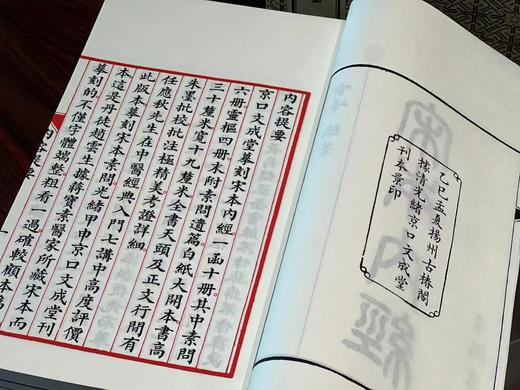 乙巳孟夏揚州古椿閣
據清光緒京口文成堂
刊本景印
內容提要
京口文成堂摹刻宋本內經一函十冊其中素問
六冊靈樞四冊末附素問遺篇。白紙大開本書高
三十釐米寬十九釐米全書天頭及正文行間有
朱墨批校批注極精美考證詳細。
任應秋先生在中醫經典入門七講中高度評價
此版本摹刻宋本素問光緒甲申京口文成堂刊
本這是丹徒趙雲生據蔣寶素醫家所藏宋本而
摹刻的不僅字體端整粗看一過確較顧本爲
內容提要